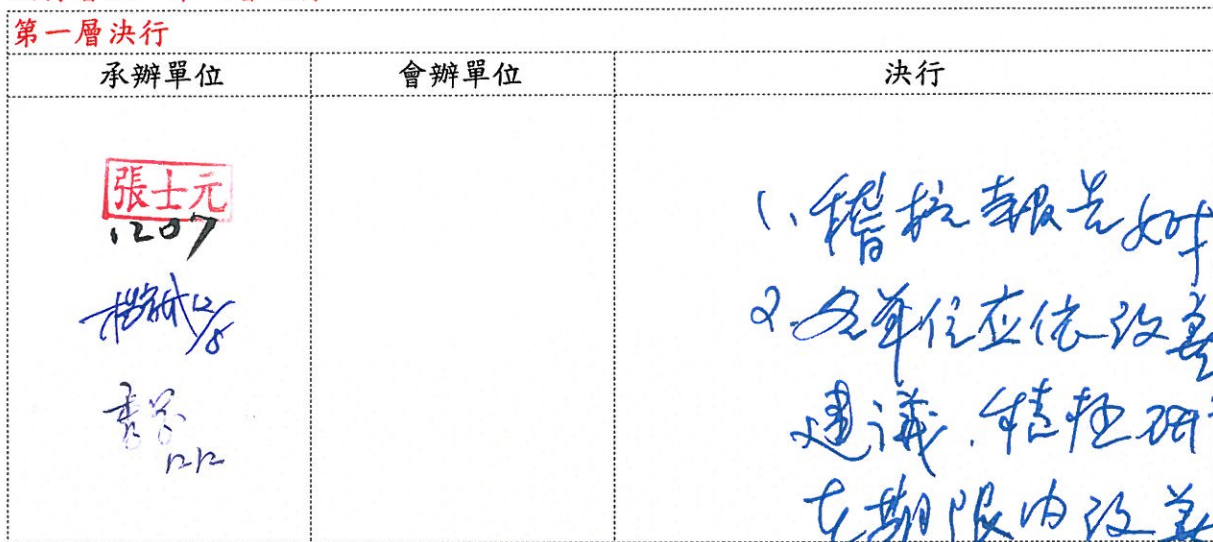 第一層決行
承辦單位
會辦單位
決行
張士元
1207
12/8
12/12
1、稽核報告如
2、各單位应依改善
建議、積極研
在期限內改善